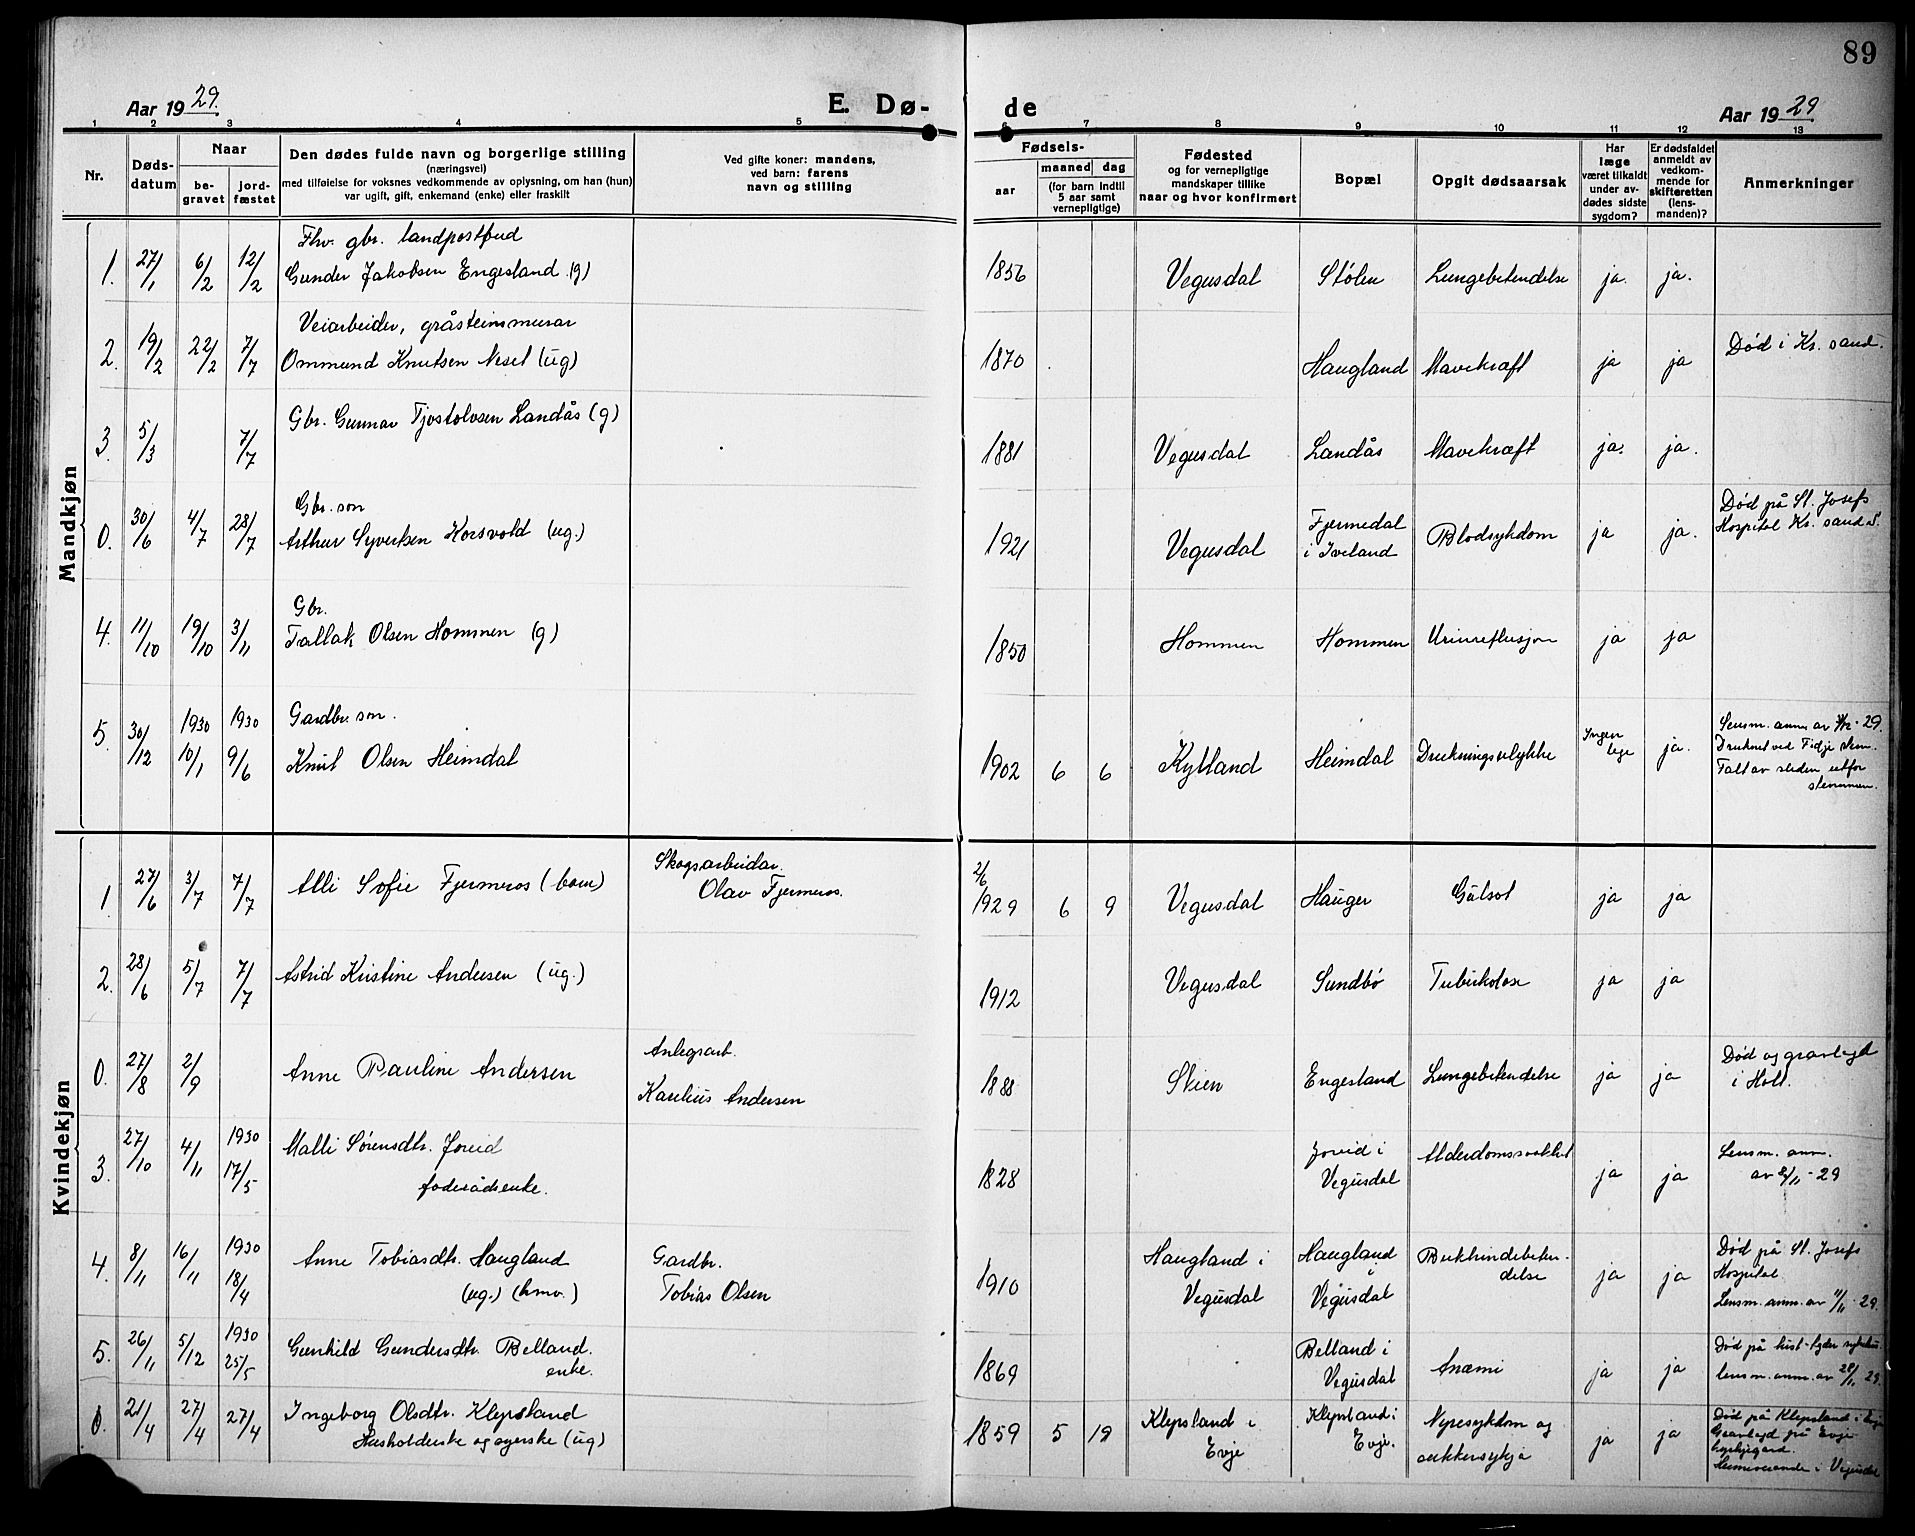 89
Aar 1929.
E. Dø-
de
Aar 1929
1 2 3 4 5 6 7 8 9 10 11 12 13
Nr.
Døds-
datum
Naar
be-
gravet
jord-
fæstet
Den dødes fulde navn og borgerlige stilling
(næringsvei)
med tilføielse for voksnes vedkommende av oplysning, om han (hun)
var ugift, gift, enkemand (enke) eller fraskilt
Ved gifte koner: mandens,
ved barn: farens
navn og stilling
Fødsels-
aar
maaned
dag
(for barn indtil
5 aar samt
vernepligtige)
Fødested
og for vernepligtige
mandskaper tillike
naar og hvor konfirmert
Bopæl
Opgit dødsaarsak
Har
læge
været tilkaldt
under av-
dødes sidste
sygdom?
Er dødsfaldet
anmeldt av
vedkom-
mende for
skifteretten
(lens-
manden)?
Anmerkninger
Mandkjøn
1. 27/1 6/2 12/2 Fhv. gbr. landpostbud
Gunder Jakobsen Engesland (g) 1856 Vegusdal Stølen Lungebetendelse ja. ja.
2. 19/2 22/2 7/7 Veiarbeider, gråsteinsmurar
Ommund Knutsen Neset (ug) 1870 Haugland Mavekræft ja ja Død i Kr. sand.
3. 5/3 7/7 Gbr. Gunnar Tjostolvsen Landås (g) 1881 Vegusdal Landås Mavekræft ja. ja.
0. 30/6 4/7 28/7 Gbr. son
Arthur Syvertsen Korsvold (ug.) 1921 Vegusdal Fjermedal
i Iveland Blodsykdom ja ja. Død på St. Josefs
Hospital Kr. sand S.
4. 11/10 19/10 3/11 Gbr.
Tallak Olsen Hommen (g) 1850 Hommen Hommen ja ja
5. 30/12 1930 10/1 1930 9/6 Gardbr. son.
Knut Olsen Heimdal 1902 6 6 Kylland Heimdal Drukningsulykke Ingen
lege ja. Lensm. anm. av 29.
Druknet ved Fidje stem.
Falt av sleden utfor
stemmen.
Kvindekjøn
1. 27/6 3/7 7/7 Alli Sofie Fjermeros (barn) Skogsarbeidar.
Olav Fjermeros. 2/6
1929 6 9 Vegusdal Hauger Gulsot ja ja
2. 28/6 5/7 7/7 Astrid Kristine Andersen (ug.) 1912 Vegusdal Sundbø Tuberkolose ja ja
0. 27/8 2/9 Anne Pauline Andersen Anlegsarb.
Karelius Andersen 1888 Skien Engesland Lungebetendelse ja ja Død og gravlagd
i Holt.
3. 27/10 4/11 1930
17/5 Malli Sørensdtr. Joreid
foderådsenke. 1828 Joreid i
Vegusdal Alderdomssvakhet ja ja Lensm. anm.
av 2/11 - 29
4. 8/11 16/11 1930
18/4 Anne Tobiasdtr. Haugland
(ug.) (hmv.) Gardbr.
Tobias Olsen 1910 Haugland i
Vegusdal Haugland
i
Vegusdal Bukhindebeten-
delse ja ja Død på St. Josefs
Hospital.
Lensm. anm. av 11/11 - 29.
5. 26/11 5/12 1930
25/5 Gunhild Gundersdtr. Belland.
enke. 1869 Belland i
Vegusdal Anæmi ja ja Død på
lensm. anm. av 29.
0. 21/4 27/4 27/4 Ingeborg Olsdtr. Klepsland
Husholderske og syerske (ug) 1859 5 19 Klepsland i
Evje Klepsland i
Evje. Nyresykdom og
sukkersykja ja ja Død på Klepsland i Evje
Gravlagd på Evje
kyrkjegard.
Heimeverande i Vegusdal